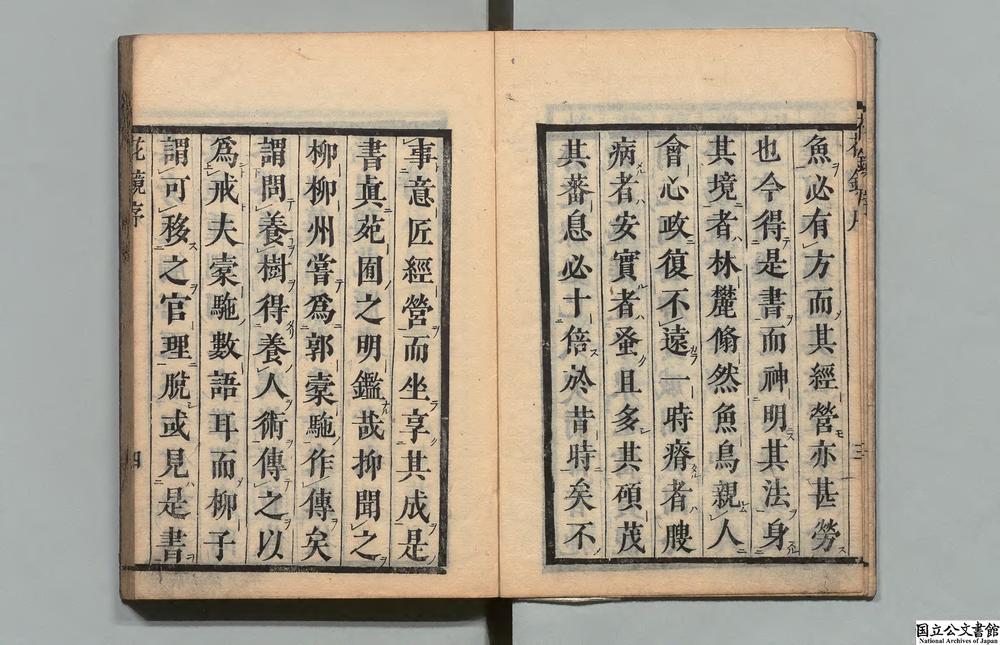 魚必有方而其經營亦甚勞
也今得是書而神明其法身
其境者林麓翛然魚鳥親人
會心政復不遠一時瘠者腴
病者安實者蚤且多其碩茂
其蕃息必十倍於昔時矣不
三
事意匠經營而坐享其成是
書眞苑囿之明鑑哉抑聞之
柳柳州嘗爲郭橐駞作傳矣
謂問養樹得養人術傳之以
爲戒夫橐駞數語耳而柳子
謂可移之官理脱或見是書
花鏡序
四
国立公文書館
National Archives of Japan